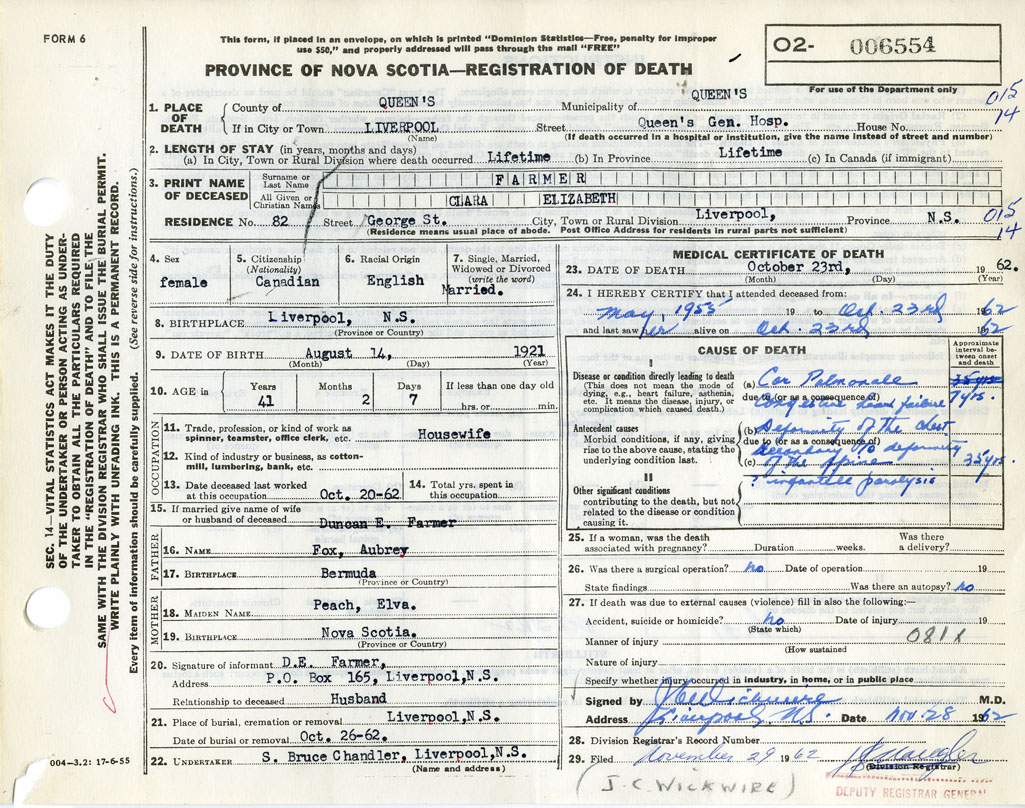 FORM 6
This form, if placed in an envelope, on which is printed "Dominion Statistics—Free, penalty for improper
use $50," and properly addressed will pass through the mail "FREE"
PROVINCE OF NOVA SCOTIA—REGISTRATION OF DEATH
02- 006554
For use of the Department only
015
14
1. PLACE OF DEATH County of QUEEN'S Municipality of QUEEN'S
If in City or Town LIVERPOOL Street Queen's Gen. Hosp. House No.
(Name) (If death occurred in a hospital or institution, give the name instead of street and number)
2. LENGTH OF STAY (in years, months and days)
(a) In City, Town or Rural Division where death occurred Lifetime (b) In Province Lifetime (c) In Canada (if immigrant)
3. PRINT NAME OF DECEASED
Surname or Last Name FARMER
All Given or Christian Names CLARA ELIZABETH
RESIDENCE No. 82 Street George St. City, Town or Rural Division Liverpool, Province N.S.
(Residence means usual place of abode. Post Office Address for residents in rural parts not sufficient)
015
14
4. Sex
female
5. Citizenship
(Nationality)
Canadian
6. Racial Origin
English
7. Single, Married,
Widowed or Divorced
(write the word)
Married.
8. BIRTHPLACE Liverpool, N.S.
(Province or Country)
9. DATE OF BIRTH August 14, 1921
(Month) (Day) (Year)
10. AGE in Years Months Days If less than one day old
41 2 7 hrs. or min.
OCCUPATION
11. Trade, profession, or kind of work as
spinner, teamster, office clerk, etc. Housewife
12. Kind of industry or business, as cotton-
mill, lumbering, bank, etc.
13. Date deceased last worked
at this occupation Oct. 20-62
14. Total yrs. spent in
this occupation
15. If married give name of wife
or husband of deceased Duncan E. Farmer
FATHER
16. NAME Fox, Aubrey
17. BIRTHPLACE Bermuda
(Province or Country)
MOTHER
18. MAIDEN NAME Peach, Elva.
19. BIRTHPLACE Nova Scotia.
(Province or Country)
20. Signature of informant D.E. Farmer,
Address P.O. Box 165, Liverpool,N.S.
Relationship to deceased Husband
21. Place of burial, cremation or removal Liverpool,N.S.
Date of burial or removal Oct. 26-62.
22. UNDERTAKER S. Bruce Chandler, Liverpool,N.S.
(Name and address)
MEDICAL CERTIFICATE OF DEATH
23. DATE OF DEATH October 23rd, 1962.
(Month) (Day) (Year)
24. I HEREBY CERTIFY that I attended deceased from:
May, 1955 19 to Oct. 23rd 1962
and last saw her alive on Oct. 23rd 1962
CAUSE OF DEATH
Approximate
interval be-
tween onset
and death
I
Disease or condition directly leading to death
(This does not mean the mode of
dying, e.g., heart failure, asthenia,
etc. It means the disease, injury, or
complication which caused death.)
(a) Cor Pulmonale 35 yrs.
due to (or as a consequence of)
congestive heart failure 7 yrs.
Antecedent causes
Morbid conditions, if any, giving
rise to the above cause, stating the
underlying condition last.
(b) Deformity of the chest
due to (or as a consequence of)
secondary to deformity
(c) of the spine 35 yrs
II
Other significant conditions
contributing to the death, but not
related to the disease or condition
causing it.
? infantile paralysis
25. If a woman, was the death
associated with pregnancy? Duration weeks. Was there
a delivery?
26. Was there a surgical operation? no Date of operation 19
State findings Was there an autopsy? no
27. If death was due to external causes (violence) fill in also the following:—
Accident, suicide or homicide? no Date of injury 19
(State which)
Manner of injury 081X
(How sustained
Nature of injury
Specify whether injury occurred in industry, in home, or in public place
Signed by J C Wickwire M.D.
Address Liverpool, N.S. Date Nov. 28 1962
28. Division Registrar's Record Number
29. Filed November 29 1962
(Division Registrar)
(J.C. WICKWIRE)
DEPUTY REGISTRAR GENERAL
004—3.2: 17-6-55
SEC. 14—VITAL STATISTICS ACT MAKES IT THE DUTY
OF THE UNDERTAKER OR PERSON ACTING AS UNDER-
TAKER TO OBTAIN ALL THE PARTICULARS REQUIRED
IN THE "REGISTRATION OF DEATH" AND TO FILE THE
SAME WITH THE DIVISION REGISTRAR WHO SHALL ISSUE THE BURIAL PERMIT.
WRITE PLAINLY WITH UNFADING INK. THIS IS A PERMANENT RECORD.
Every item of information should be carefully supplied. (See reverse side for instructions.)